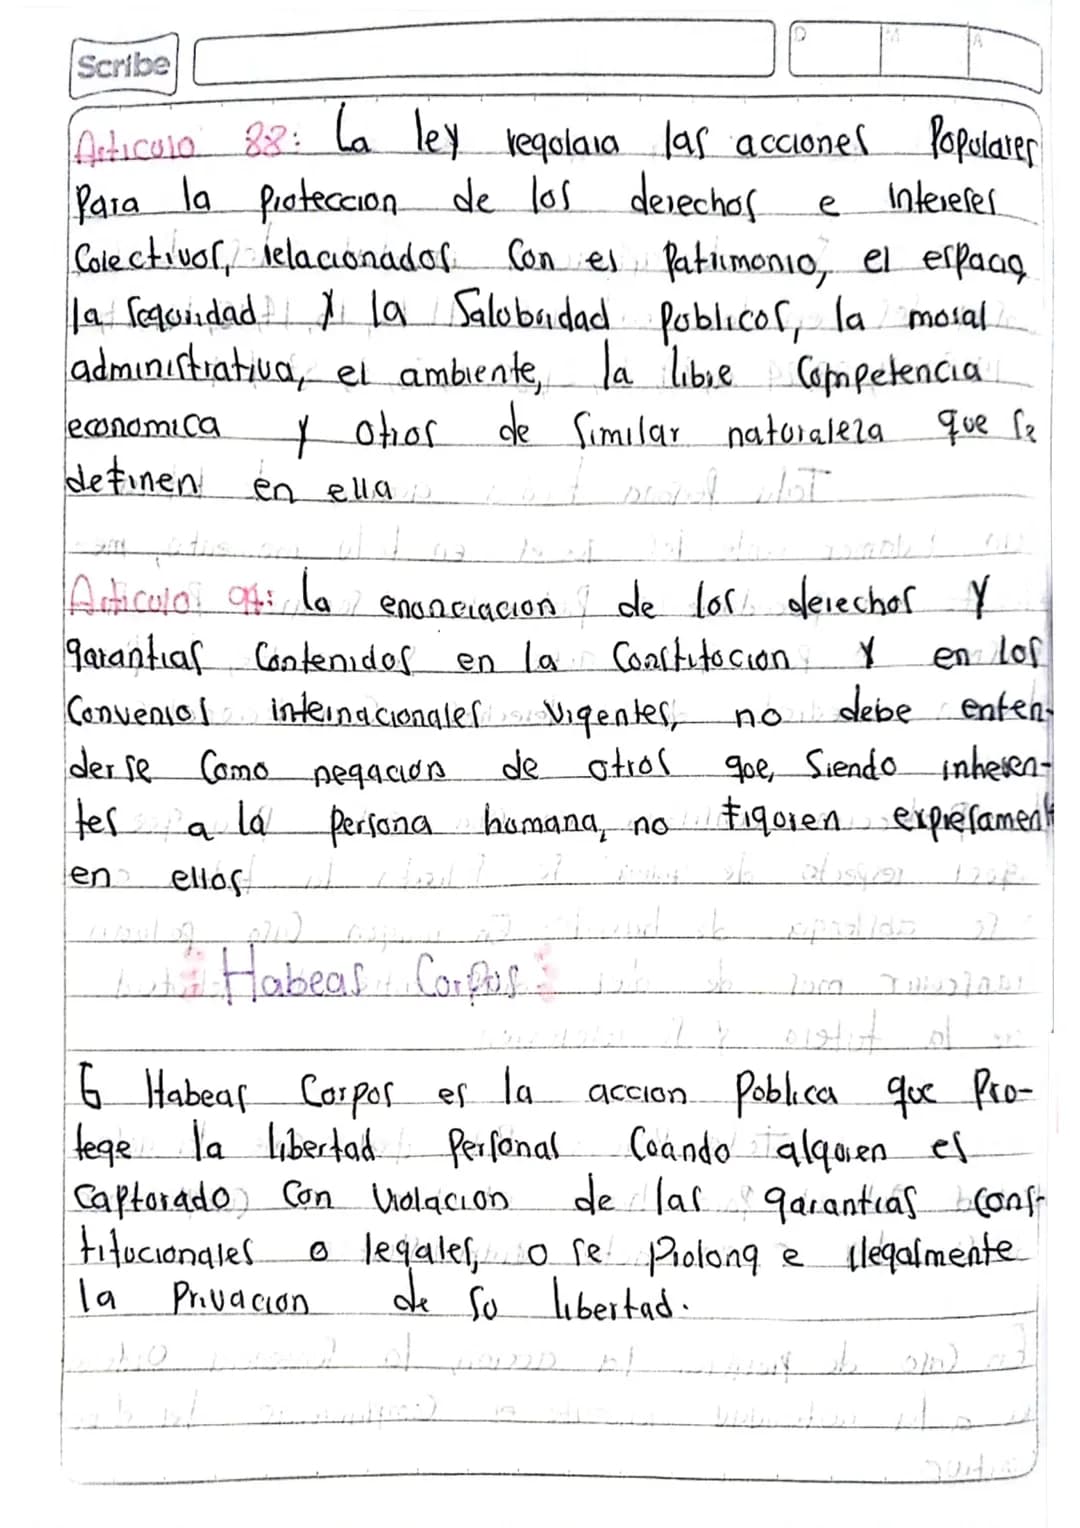 Scribe
D M A
Articulo 88: La ley regulara las acciones Populares
Para la Proteccion de los derechos e Intereses
Colectivos, relacionados Con el Patrimonio, el espacio,
la Seguridad y la Salubridad Publicos, la moral
administrativa, el ambiente, la libre Competencia
economica y otros de Similar naturaleza que se
definen en ella
Articulo 94: la enunciacion de los derechos Y
garantias Contenidos en la Constitucion Y en los
Convenios internacionales Vigentes, no debe enten-
derse Como negacion de otros que, Siendo inheren-
tes a la Persona humana, no figuren expresament
en ellos
Habeas Corpus
Habeas Corpus es la accion Publica que Pro-
tege la libertad Personal Cuando alguien es
Capturado Con Violacion de las garantias Cons-
titucionales o legales, o se Prolong e ilegalmente
la Privacion de Su libertad.